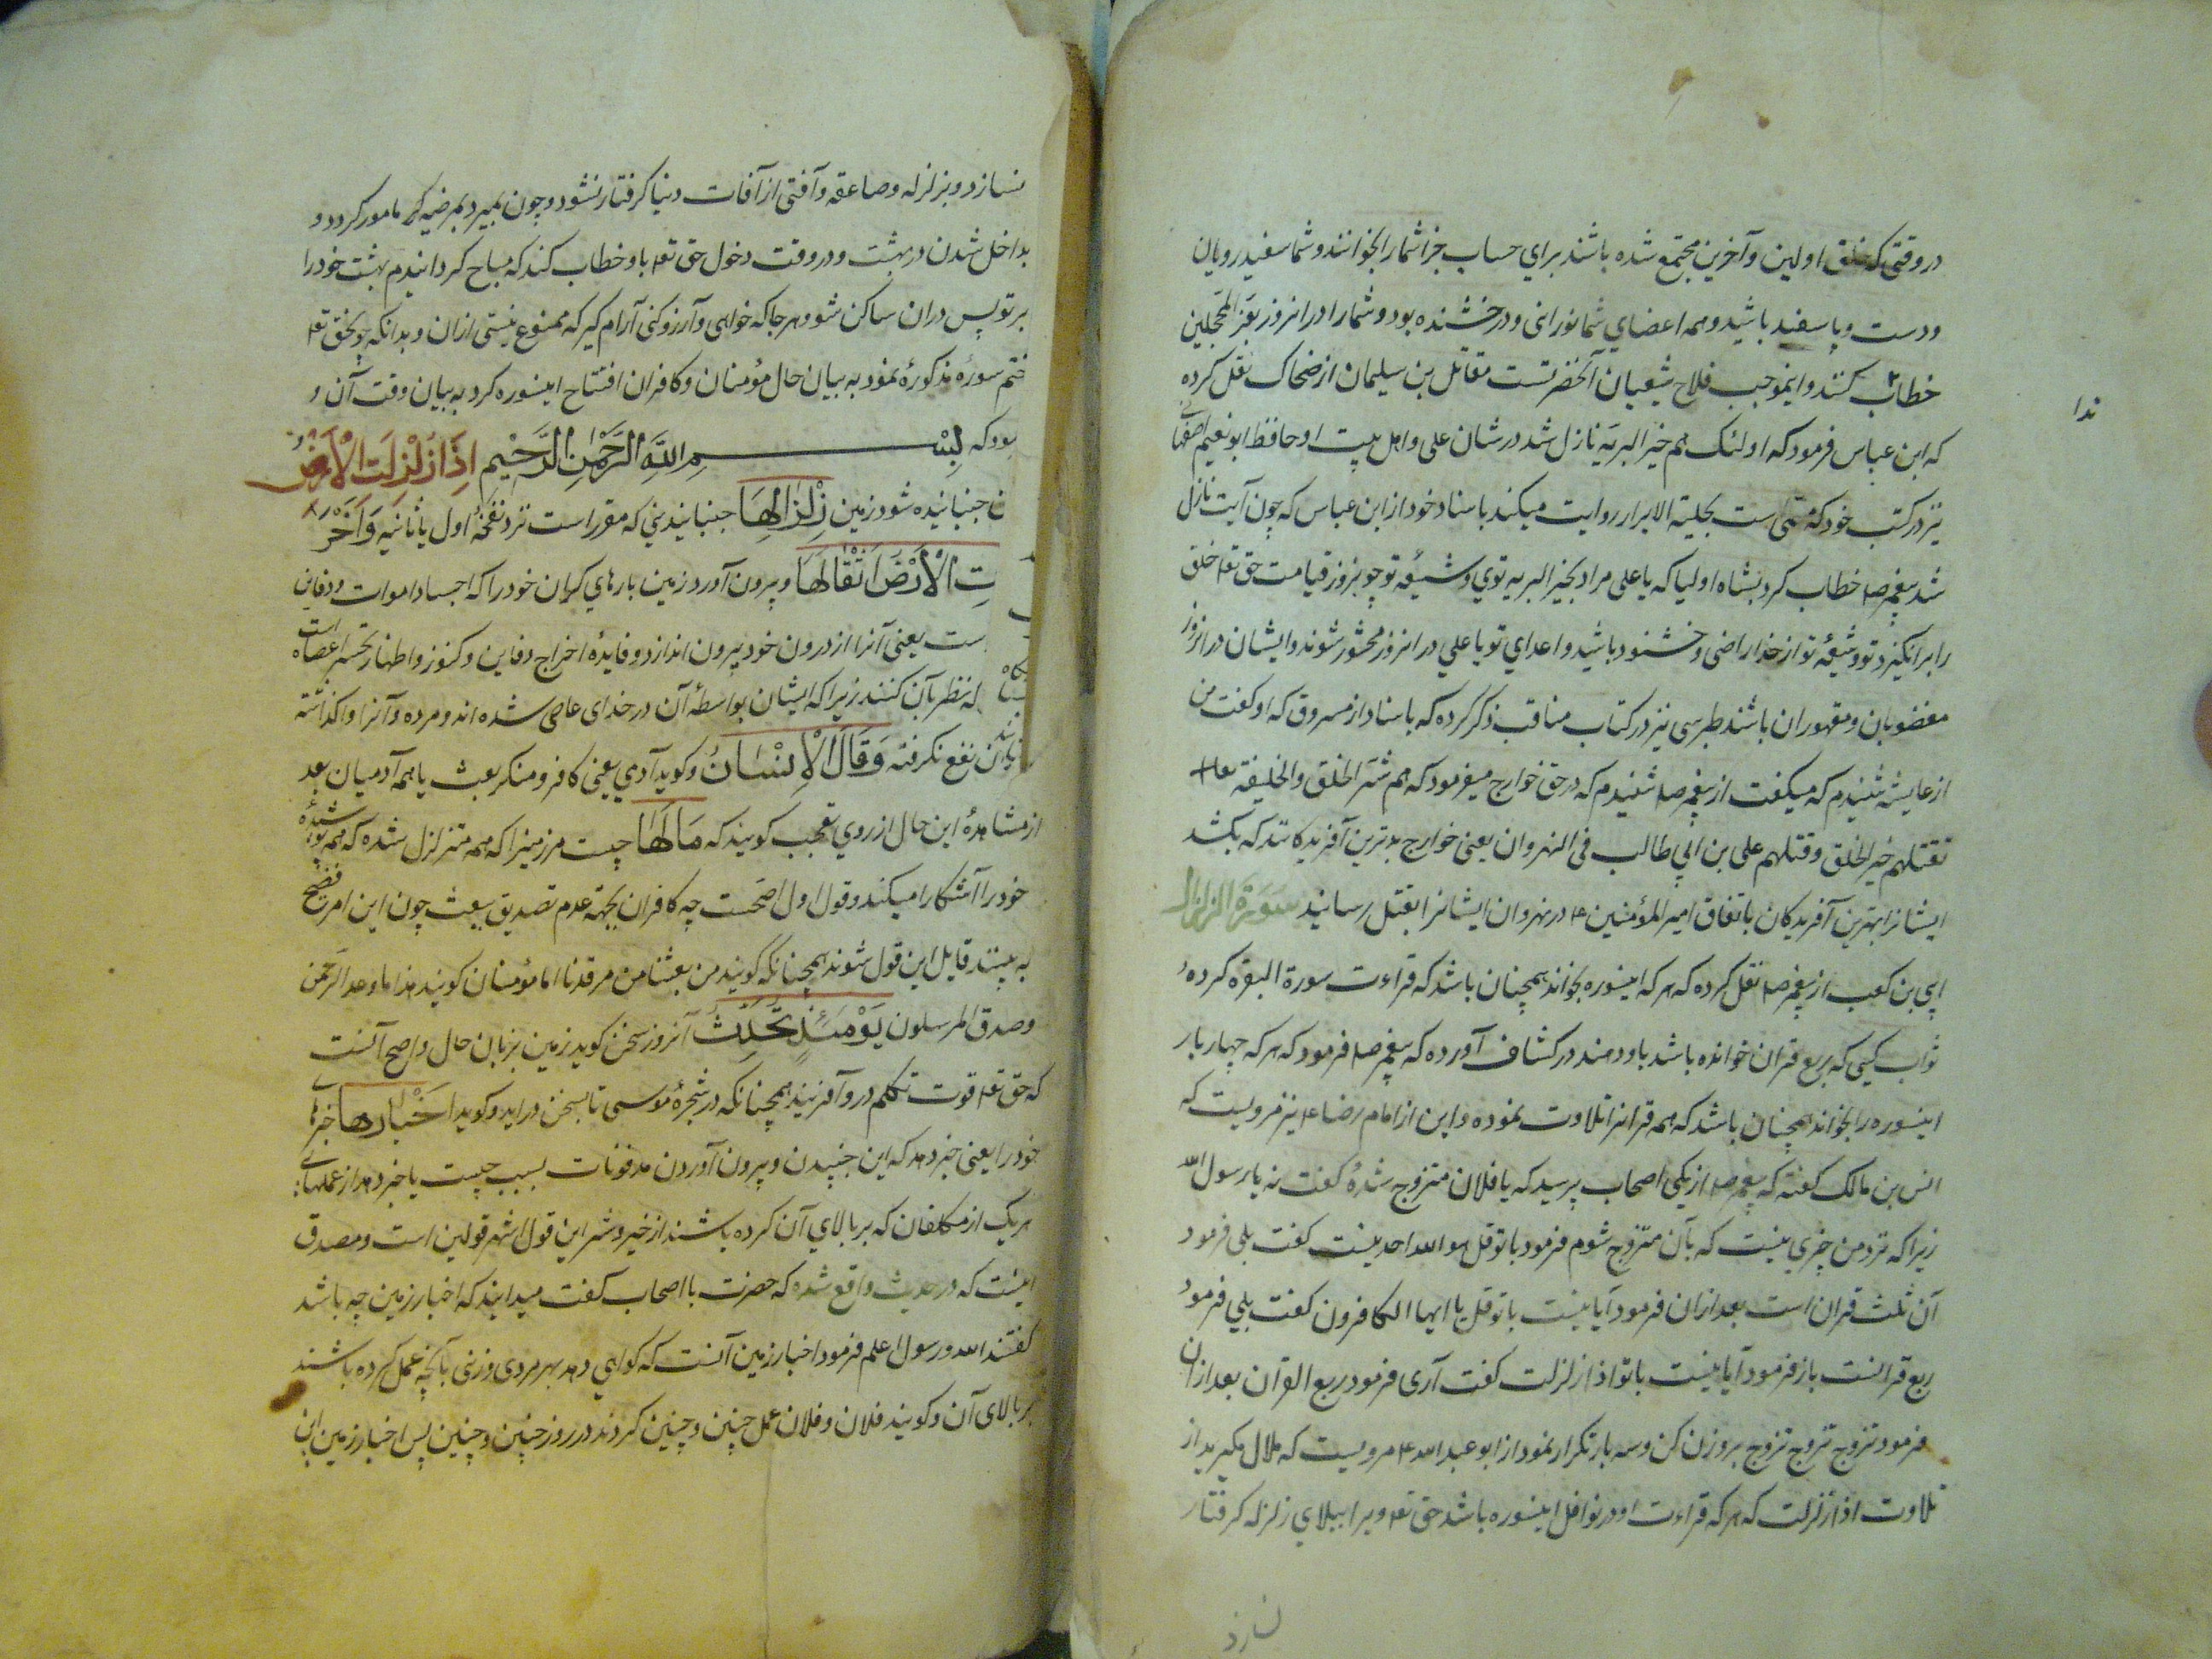 در وقتی که خلق اولین و آخرین مجتمع شده باشند براي حساب جزا شما را بخوانند و شما سفید رویان
ودست وپا سفید باشید و همه اعضاي شما نورانی و درخشنده بود و شما را در انروز بغر المحجلین
خطاب کنند و اینموجب فلاح شیعیان آنحضرتست مقاتل بن سلیمان از ضحاک نقل کرده
ندا
که ابن عباس فرمود که اولئک هم خیر البریه نازل شد در شان علی و اهل بیت او حافظ ابو نعیم اصفهانی
نیز در کتب خود که مسمی است بحلیة الابرار روایت میکند باسناد خود از ابن عباس که چون آیت نازل
شد پیغمبر صلعم خطاب کرد بشاه اولیا که یا علی مراد بخیر البریه توي و شیعۀ تو چو بروز قیامت حق تعا خلق
را بر انگیزد تو و شیعۀ تو از خدا راضی و خشنود باشید و اعداي تو یا علي در انروز محشور شوند و ایشان در انروز
مغضوبان و مقهوران باشند طبرسی نیز در کتاب مناقب ذکر کرده که باسناد از مسروق که او کفت من
از عایشه شنیدم که میکفت از پیغمبر صلعم شنیدم که در حق خوارج میفرمود که هم شر الخلق والخلیقة
تقتلهم خیر الخلق و قتلهم علی بن ابي طالب فی النهروان یعنی خوارج بدترین آفریدکانند که بکشد
ایشانرا بهترین آفریدکان باتفاق امیر المؤمنین ع در نهروان ایشانرا بقتل رسانید سورة الزلزال
ابي بن کعب از پیغمبر صلعم نقل کرده که هر که اینسوره بخواند همچنان باشد که قراءت سورة البقره کرده
ثواب کسی که ربع قران خوانده باشد باو دهند در کشاف آورده که پیغمبر صلعم فرمود که هر که چهار بار
اینسوره را بخواند همچنان باشد که همه قرانرا تلاوت نموده و این از امام رضا ع نیز مرویست که
انس بن مالک کفته که پیغمبر صلعم از یکي اصحاب پرسید که یا فلان متزوج شدۀ کفت نه یا رسول الله
زیرا که نزد من چیزي نیست که بآن متزوج شوم فرمود با تو قل هو الله احد نیست کفت بلی فرمود
آن ثلث قران است بعد ازان فرمود آیا نیست با تو قل یا ایها الکافرون کفت بلي فرمود
ربع قرانست باز فرمود آیا نیست با تو اذا زلزلت کفت آری فرمود ربع القرآن بعد ازان
فرمود تزوج تزوج تزوج برو زن کن و سه بار تکرار نمود از ابو عبد الله ع مرویست که ملال مکیرید از
تلاوت اذا زلزلت که هر که قراءت او در نوافل اینسوره باشد حق تعا ویرا ببلاي زلزله کرفتار
نسازد
نسازد و بزلزله و صاعقه و آفتی از آفات دنیا کرفتار نشود و چون بمیرد مامور کردد و
بداخل شدن در بهشت و در وقت دخول حق تعا باو خطاب کند که مباح کردانیدم بهشت خود را
بر تو پس دران ساکن شو و هر جا که خواهی و آرزو کنی آرام کیر که ممنوع نیستی ازان و بدانکه چو حق تعا
ختم سورۀ مذکوره نمود به بیان حال مؤمنان و کافران افتتاح اینسوره کرد به بیان وقت آن و
بود که بسم الله الرحمن الرحیم اذا زلزلت الارض
جنبانیده شود زمین زلزالها جنبانیدنی که مقرر است نزد نفخۀ اول یا ثانیه واخر
ت الارض اثقالها و بیرون آورد زمین بارهاي کران خود را که اجساد اموات و دفاین
است یعنی آنرا از درون خود بیرون اندازد و فایدۀ اخراج دفاین و کنوز و اظهار تحسر عصاه است
که نظر بآن کنند زیرا که ایشان بواسطۀ آن در خدای عاصی شده اند و مرده و آنرا واکذاشته
ازان نفع نکرفته وقال الانسان و کوید آدمي یعنی کافر و منکر بعث یا همه آدمیان بعد
از مشاهدۀ این حال از روي تعجب کویند که مالها چیست مر زمینرا که همه متزلزل شده که همه
خود را آشکارا میکند و قول اول اصحست چه کافران بجهة عدم تصدیق ببعث چون این امر فضیح
به بینند قایل این قول شوند همچنانکه کویند من بعثنا من مرقدنا اما مؤمنان کویند هذا ما وعد الرحمن
وصدق المرسلون یومئذ تحدث آنروز سخن کوید زمین بزبان حال و اصح آنست
که حق تعا قوت تکلم در و آفریند همچنانکه در شجرۀ موسی تا بسخن دراید و کوید اخبارها خبرهاي
خود را یعنی خبر دهد که این جنبیدن و بیرون آوردن مدفونات بسبب چیست یا خبر دهد از عملهاي
هریک از مکلفان که بر بالاي آن کرده باشند از خیر و شر این قول اشهر قولین است و مصدق
اینست که در حدیث واقع شده که حضرت با اصحاب کفت میدانید که اخبار زمین چه باشد
کفتند الله ورسوله اعلم فرمود اخبار زمین آنست که کواهي دهد بهر مردی و زنی بآنچه عمل کرده باشند
بر بالای آن و کویند فلان و فلان عمل چنین و چنین کردند در روز چنین و چنین پس اخبار زمین این